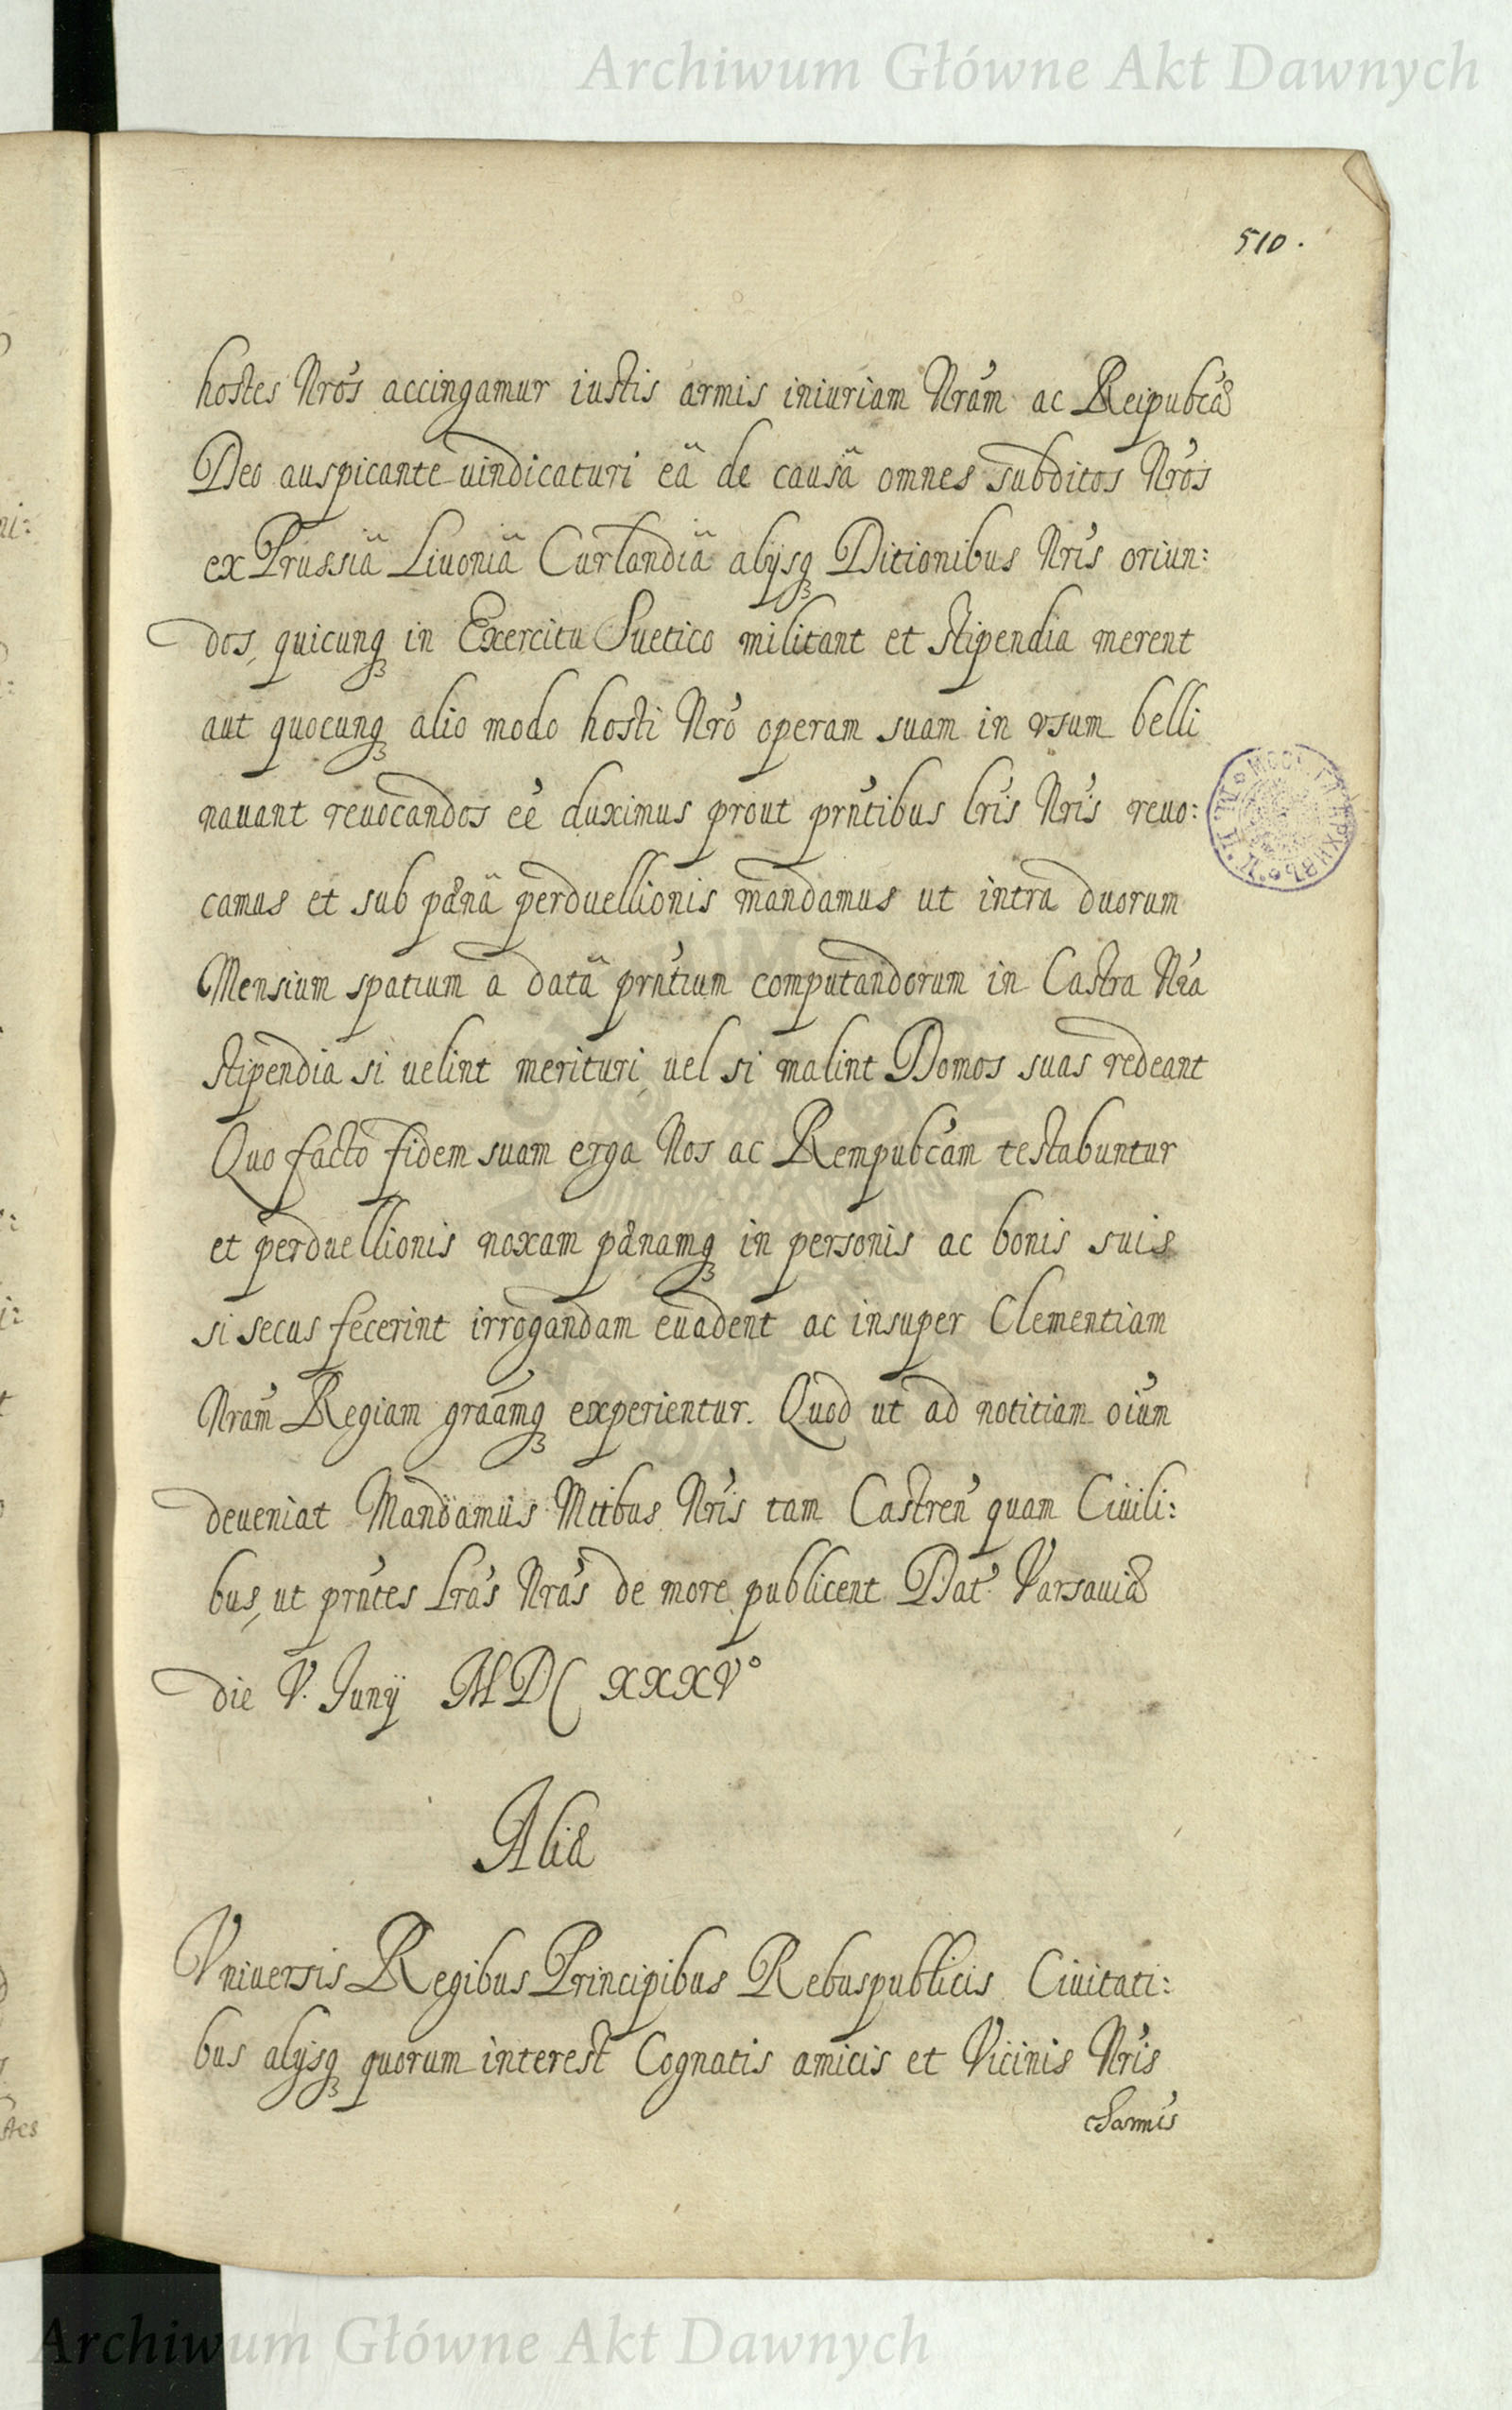 Archiwum Główne Akt Dawnych
510.
hostes Nrós accingamur iustis armis iniuriam Nrám ac Reipubcæ
Deo auspicante vindicaturi eâ de causâ omnes subditos Nrós
ex Prussiâ Livoniâ Curlandiâ alijsq Ditionibus Nrís oriun:
dos, quicunq in Exercitu Suetico militant et stipendia merent
aut quocunq alio modo hosti Nró operam suam in vsum belli
nauant reuocandos eé duximus prout prńtibus lrís Nrís reuo:
camus et sub pænâ perduellionis mandamus ut intra duorum
Mensium spatium a datâ prńtium computandorum in Castra Nrá
stipendia si uelint merituri uel si malint Domos suas redeant
Quo facto fidem suam erga Nos ac Rempubcám testabuntur
et perduellionis noxam pænamq in personis ac bonis suis
si secus fecerint irrogandam euadent ac insuper Clementiam
Nrám Regiam graámq experientur. Quod ut ad notitiam oiúm
deueniat Mandamus Mtibus Nrís tam Castreń quam Ciuili:
bus, ut prńtes Lrás Nrás de more publicent Dat' Varsauiæ
die V. Junÿ MDC XXXV°
Aliæ
Vniuersis Regibus Principibus Rebuspublicis Ciuitati:
bus alijsq quorum interest Cognatis amicis et Vicinis Nrís
charmís
Archiwum Główne Akt Dawnych